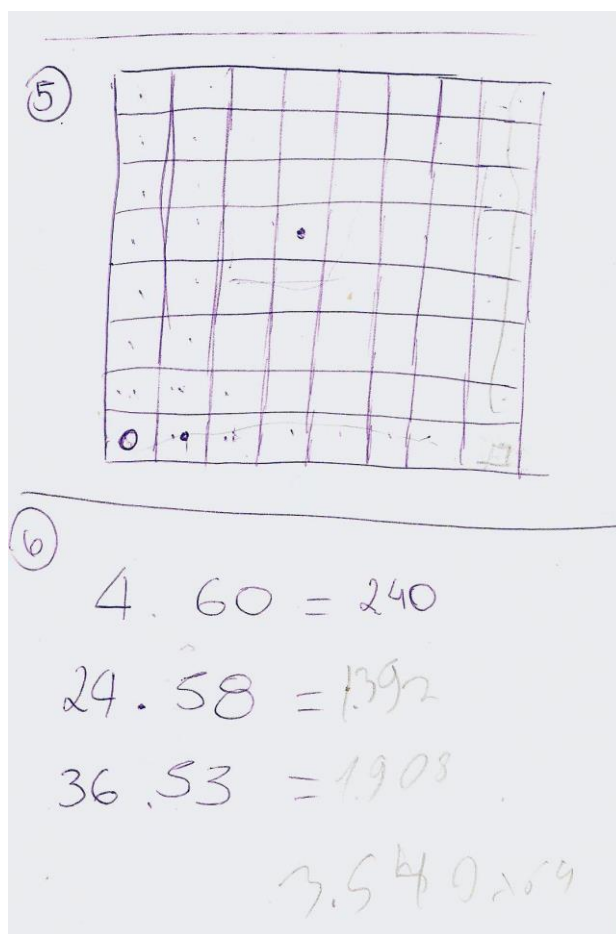 5
6
4 . 60 = 240
24 . 58 = 1392
36 . 53 = 1.908
3.540